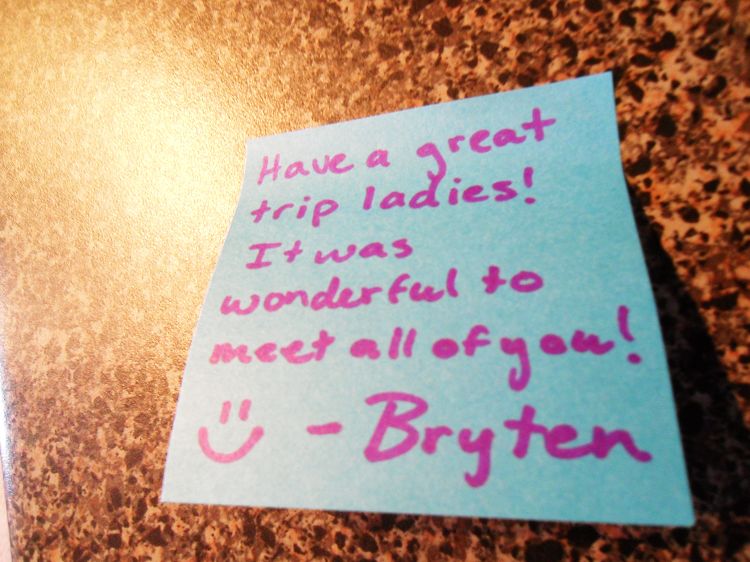 Have a great
trip ladies!
It was
wonderful to
meet all of you!
- Bryten